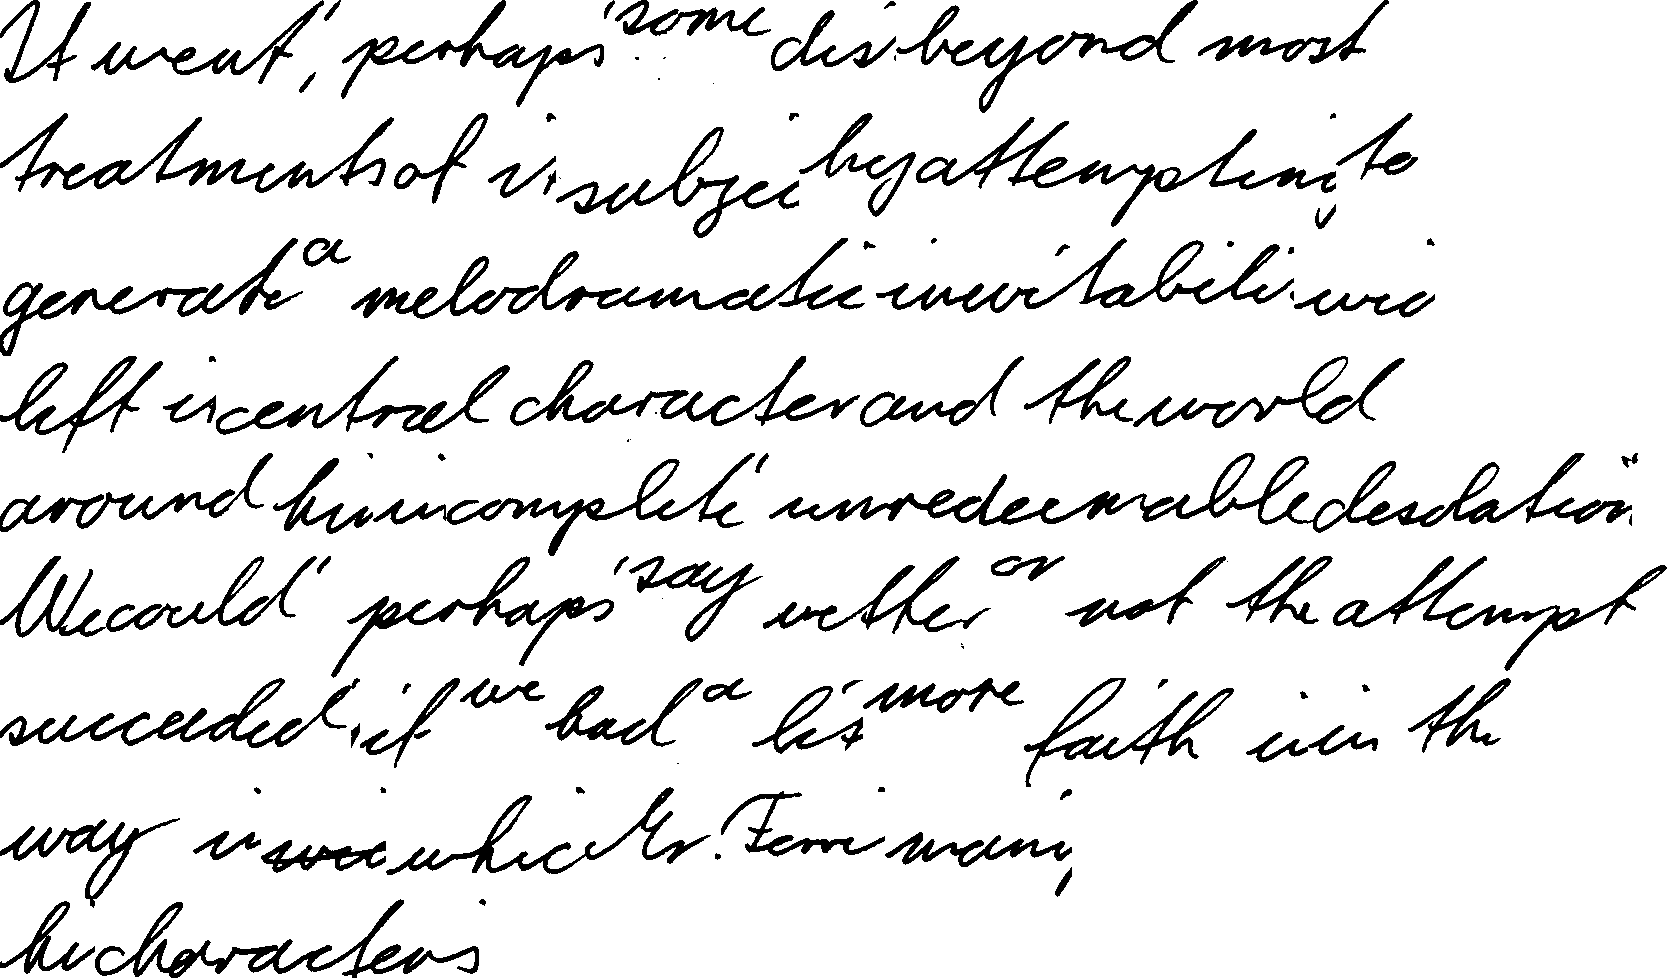 It went, perhaps some dis beyond most
treatments of i subjec by attempting to
generate a melodramatic inevitabili wic
left is central character and the world
around him in complete unredeemable desolation
We could perhaps say wether or not the attempt
succeeded, if we had a bit more faith in in the
way in whic Mr. Ferri mani,
hi characters